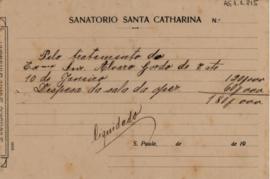 SANATORIO SANTA CATHARINA N.º
Pelo tratamento do
Exmo Snr. Alvaro Gordo de 2 ate
10 de Janeiro 120$000
Despeza da sala da oper. 60$000
180$000
Liquidado
S. Paulo, de de 19